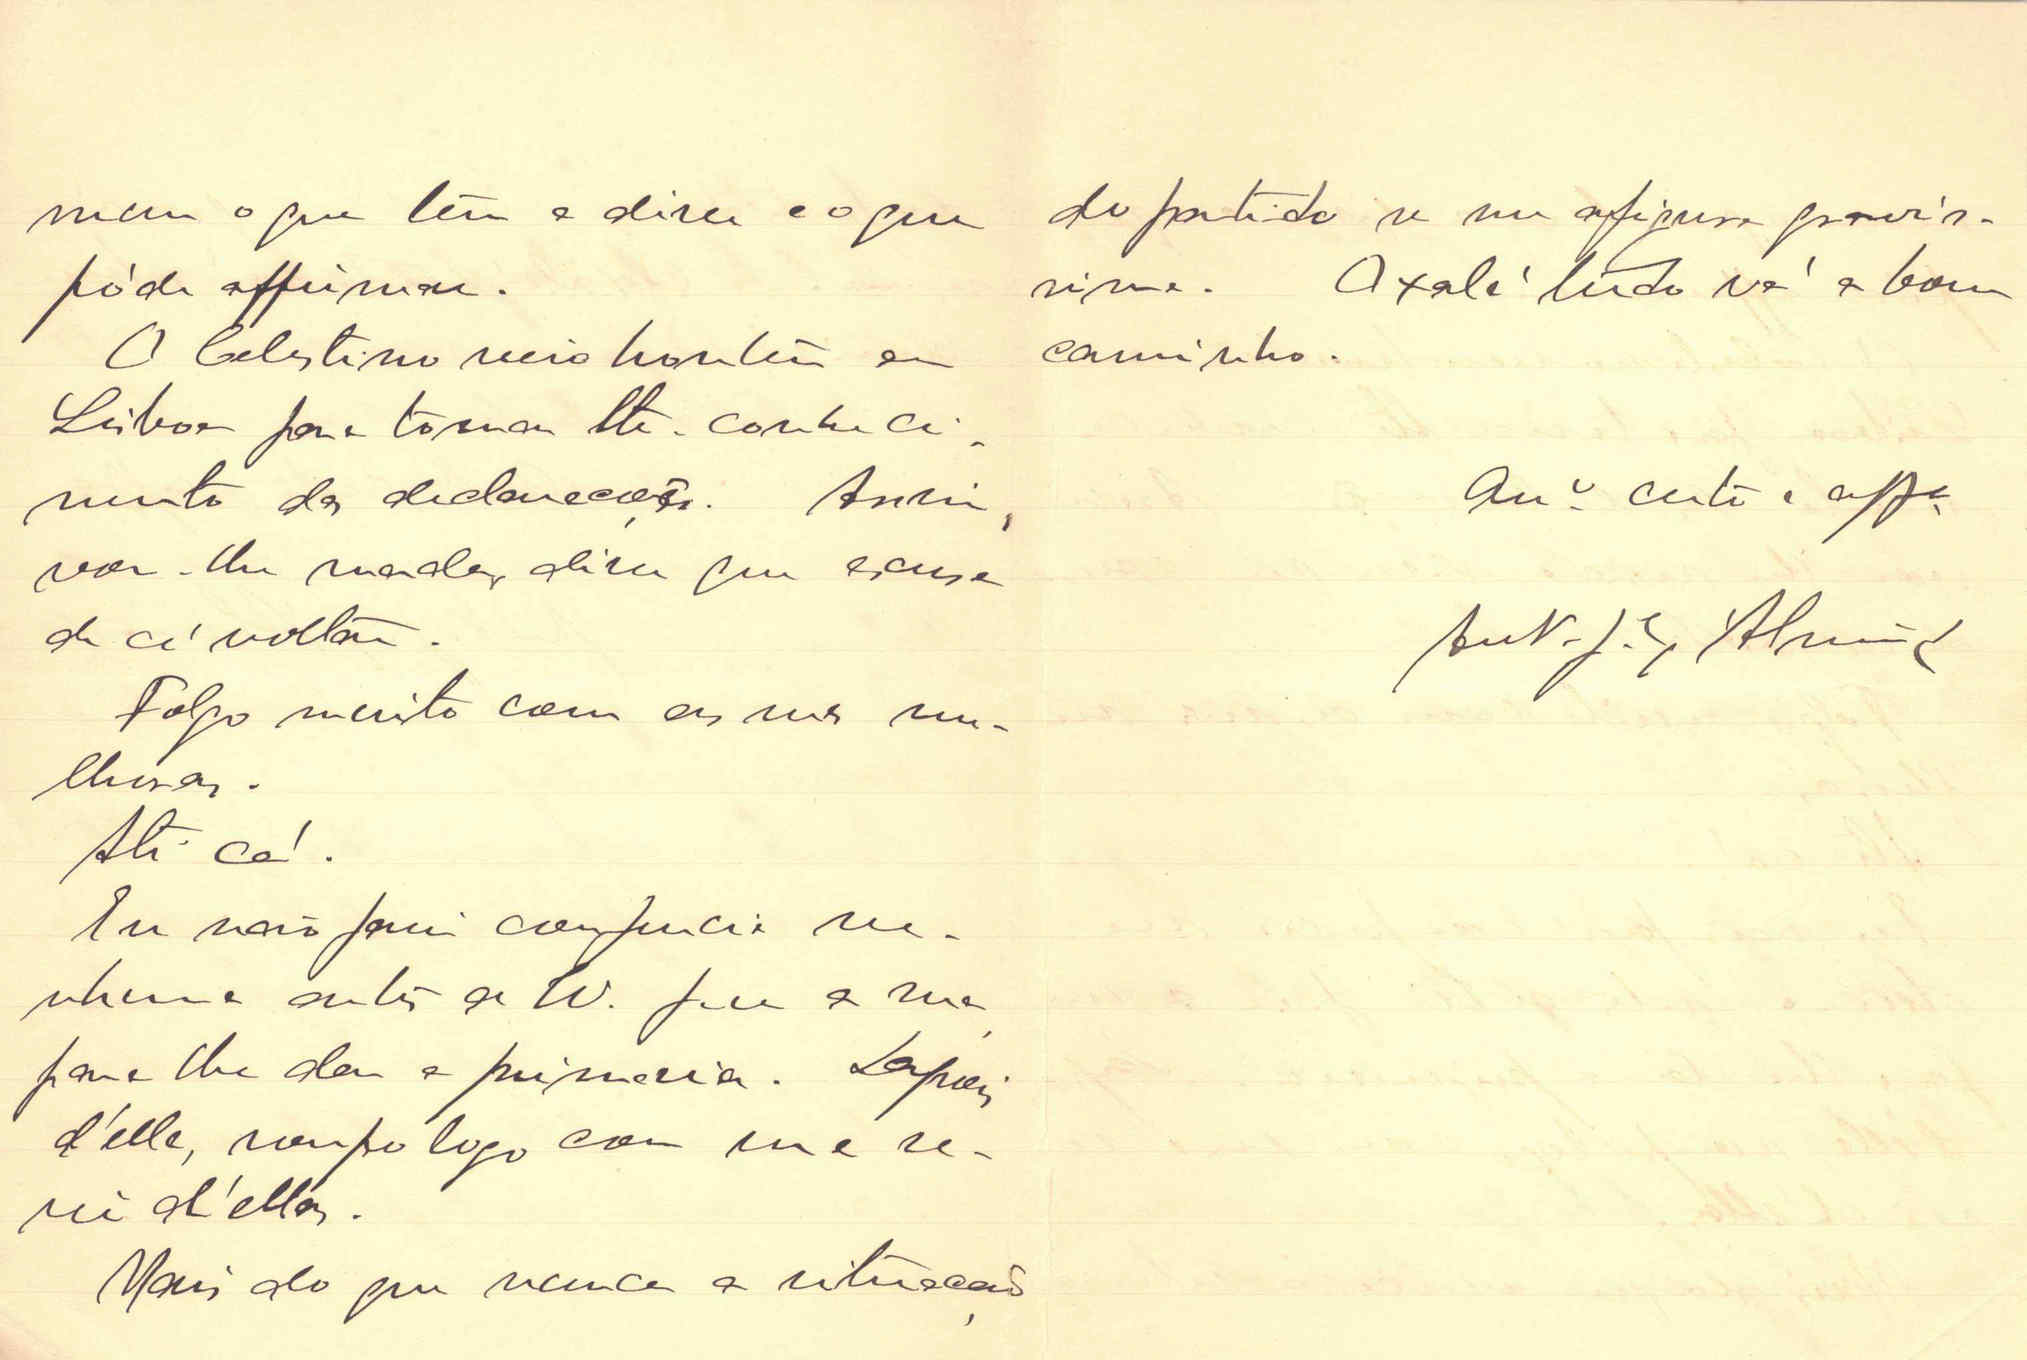 mem o que têm a dizer e o que
póde affirmar.
O Celestino veio hontem a
Lisboa para tomar-lhe conheci-
mento das declarações. Assim,
vou-lhe mandar dizer que escusa
de cá voltar.
Folgo muito com as suas me-
lhoras.
Até cá.
Eu não farei conferencia ne-
nhuma antes de V. fazer a sua
para lhe dar a primasia. Depois
d'elle, rompo logo com uma se-
rie d'ellas.
Mais do que nunca a situação
do partido se me afigura gravis-
sima. Oxalá tudo vá a bom
caminho.
Am.º certo e aff.º
Ant. J. Almeida